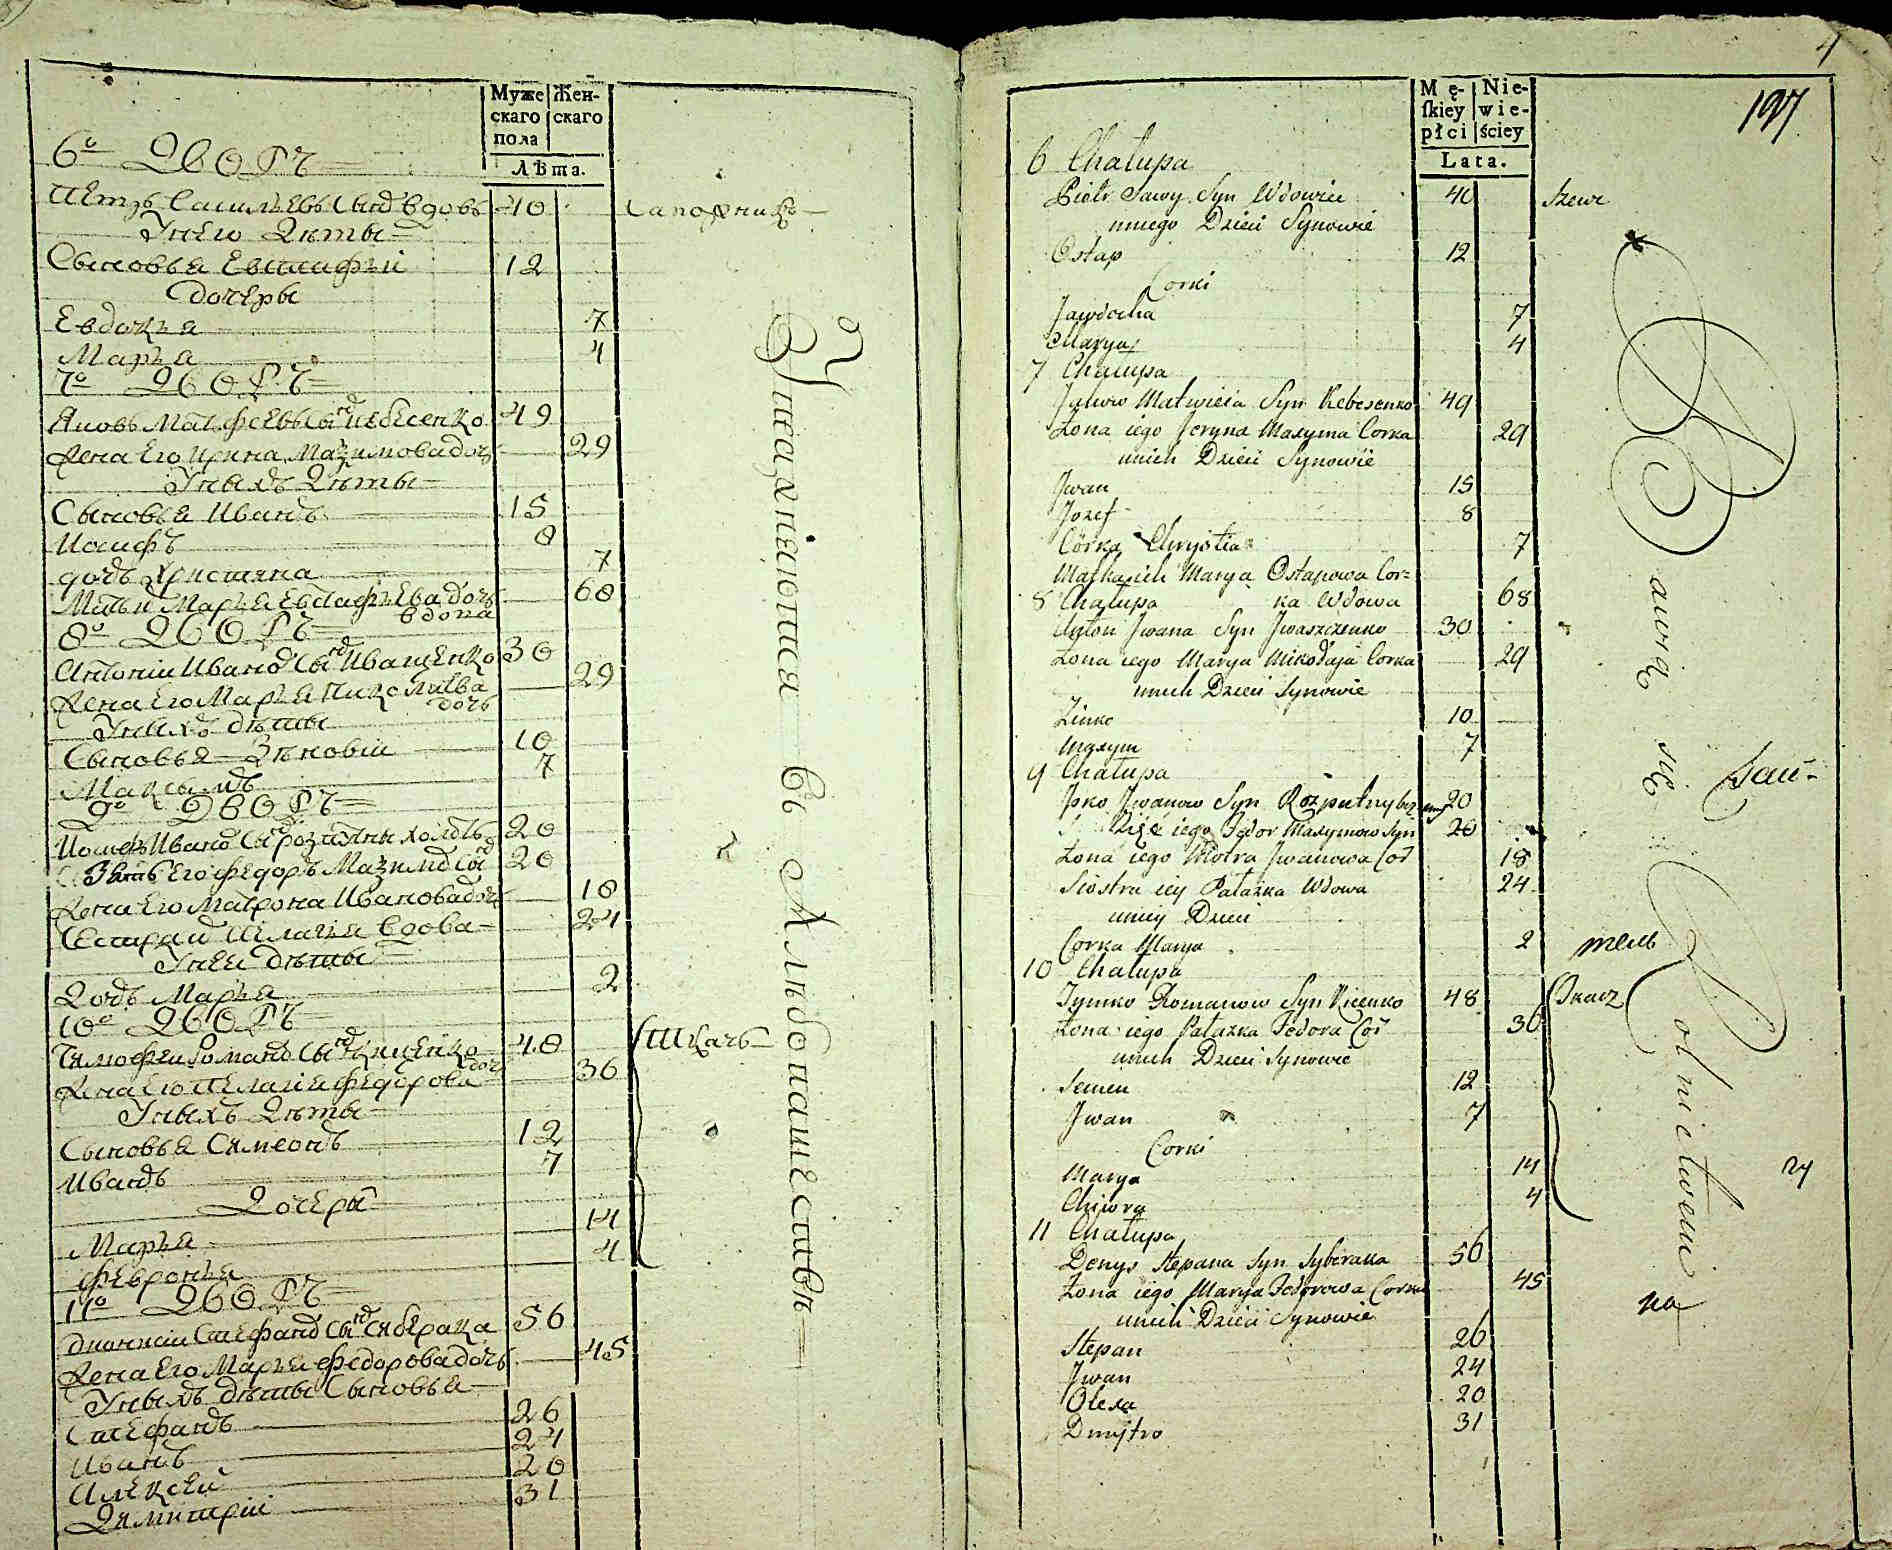 Муже
скаго
пола
Жен-
скаго
Лѣта.
6º Дворъ
Петръ Савы Сынъ вдовъ 40 Сапожникъ
У него Дѣты
Сыновья Евстафѣй 12
Дочеры
Евдокъя 7
Маръя 4
7º Дворъ
Яковъ Матфеевъ Сынъ Кебесенко 49
Жена Его Ирина Маѯимова дочь 29
У ныхъ Дѣты
Сыновья Иванъ 15
Иосифъ 8
дочь Христина 7
Мать их Маръя Евстафъева дочь 68
вдова
8º Дворъ
Антоній Иванов Сынъ Иващенко 30
Жена Его Маръя Николаева 29
дочь
У ныхъ дѣты
Сыновъя Зѣновій 10
Максымъ 7
9º Дворъ
Иосифъ Иванов Сын 20
Зять Его Федоръ Маѯимов Сынъ 20
Жена Его Матрона Иванова дочь 18
Сестра Пелагея вдова 24
У неи дѣты
Дочь Маръя 2
10º Дворъ
Тимофеи Романов Сынъ Киценко 48 Ткачъ
Жена Его Пелагия Федорова дочь 36
У ныхъ Дѣты
Сыновья Симеонъ 12
Иванъ 7
Дочеры
Маръя 14
Февронъя 4
11º Дворъ
Дионисій Стефанов Сынъ Сиберака 56
Жена Его Маръя Федорова дочь 45
У ныхъ дѣты Сыновья
Стефанъ 26
Иванъ 24
Алексей 20
Димитрій 31
Упражняются въ Хлѣбопашествѣ
4
197
Mę-
skiey
płci
Nie-
wie-
ściey
Lata.
6 Chałupa
Piotr Sawy Syn Wdowiec 40 Szewc
unuego Dzieci Synowie
Ostap 12
Corki
Jawdocha 7
Marya 4
7 Chałupa
Jakow Matwieia Syn Kebesenko 49
Żona iego Jeryna Maxyma Corka 29
unich Dzieci Synowie
Jwan 15
Jozef 8
Córka Chrystia 7
Matka ich Marya Ostapowa Cor=
8 Chałupa ka Wdowa 68
Anton Jwana Syn Jwaszczenko 30
Żona iego Marya Mikołaja Corka 29
unich Dzieci Synowie
Zinko 10
Maxym 7
9 Chałupa
Josko Jwanow Syn 20
Zięć iego Fedor Maxymow Syn 20
Żona iego Motra Jwanowa Cor 18
Siostra iey Pałażka Wdowa 24
uniey Dzieci
Corka Marya 2
тель
10 Chałupa
Tymko Romanow Syn Kicenko 48 Tkacz
Żona iego Pałażka Fedora Cor 36
unich Dzieci Synowie
Semen 12
Jwan 7
Corki
Marya 14
Chiwra 4
11 Chałupa
Denys Stepana Syn Syberaka 56
Żona iego Marya Fedorowa Corka 45
unich Dzieci Synowie
Stepan 26
Jwan 24
Olexa 20
Dmytro 31
Bawią się Rolnictwem